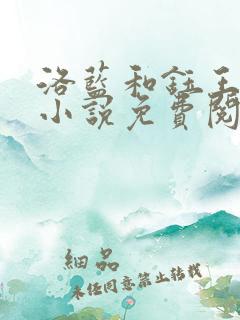 洛藍和鈺王
小說免費閱
細品
未經同意禁止轉載